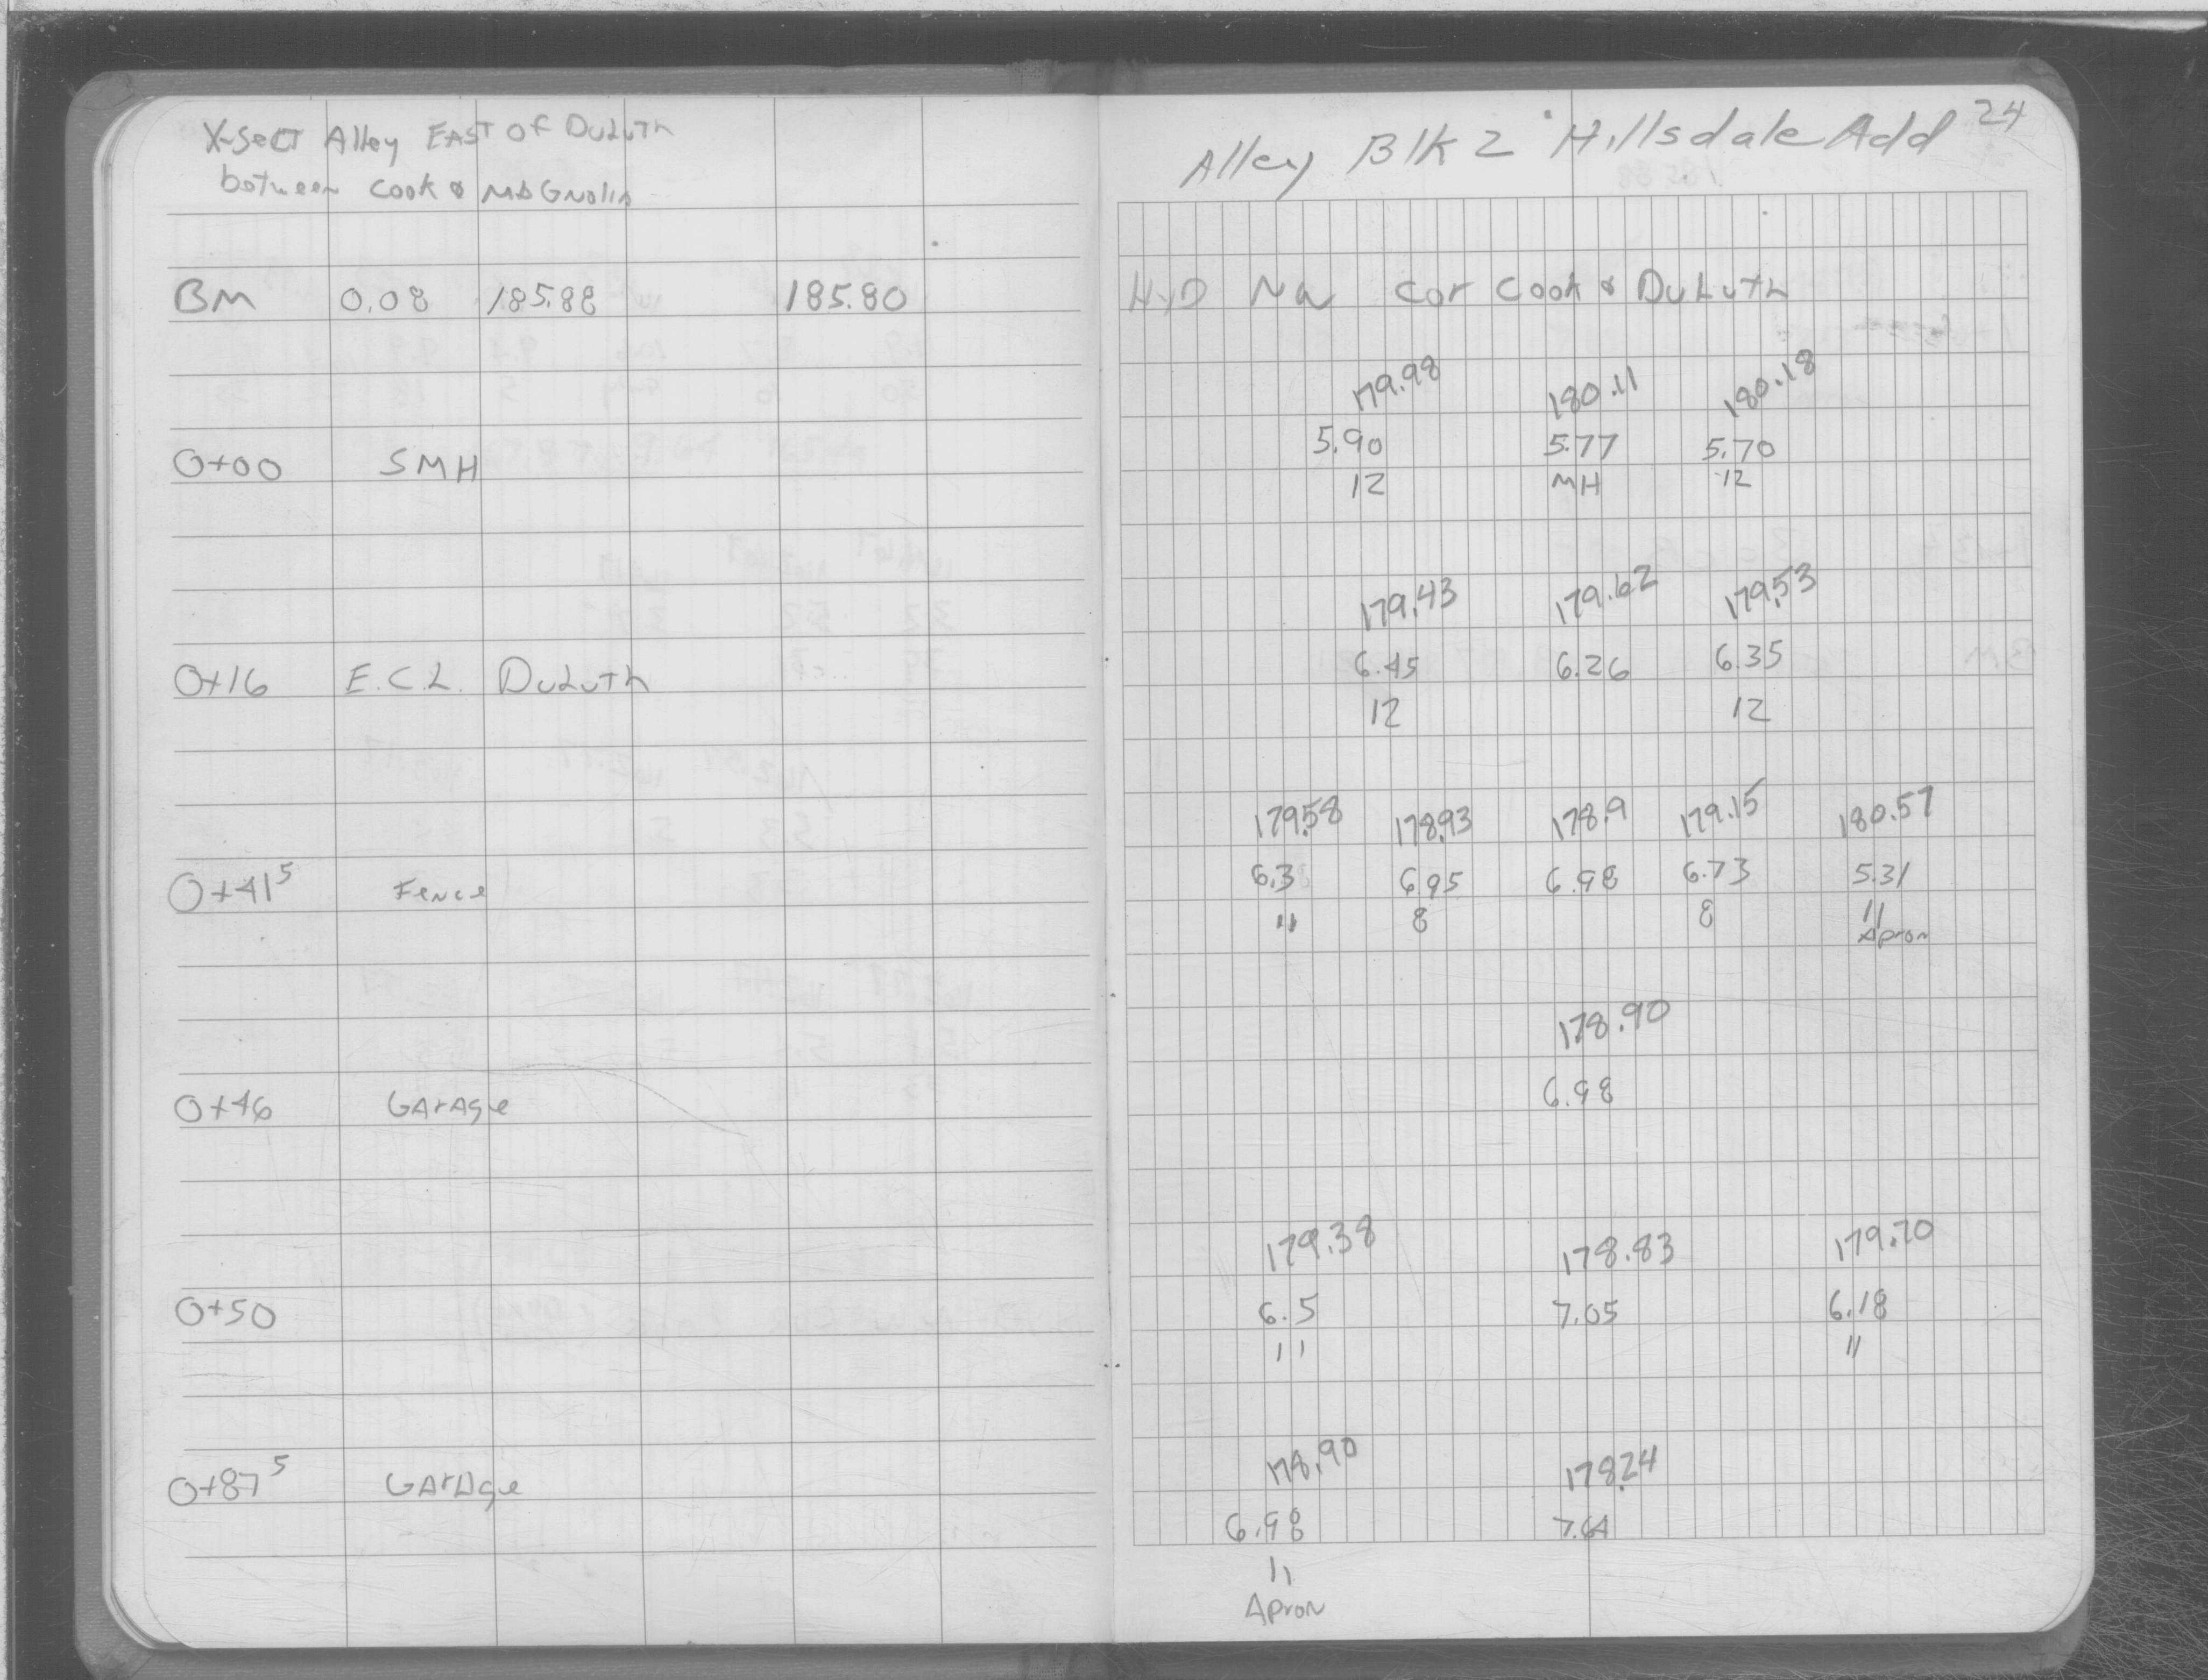 X-Sect Alley EAST OF DuLuth
between Cook & MAGNolia
BM 0.08 185.88 185.80
0+00 SMH
0+16 E.C.L. DuLuth
0+41⁵ Fence
0+46 GArAge
0+50
0+87⁵ GArAge
24
Alley Blk 2 Hillsdale Add
HyD NW Cor Cook & DuLuth
179.98 180.11 180.18
5.90 5.77 5.70
12 MH 12
179.43 179.62 179.53
6.45 6.26 6.35
12 12
179.58 178.93 178.9 179.15 180.57
6.3 6.95 6.98 6.73 5.31
11 8 8 11
Apron
178.90
6.98
179.38 178.83 179.70
6.5 7.05 6.18
11 11
178.90 178.24
6.98 7.64
11
Apron